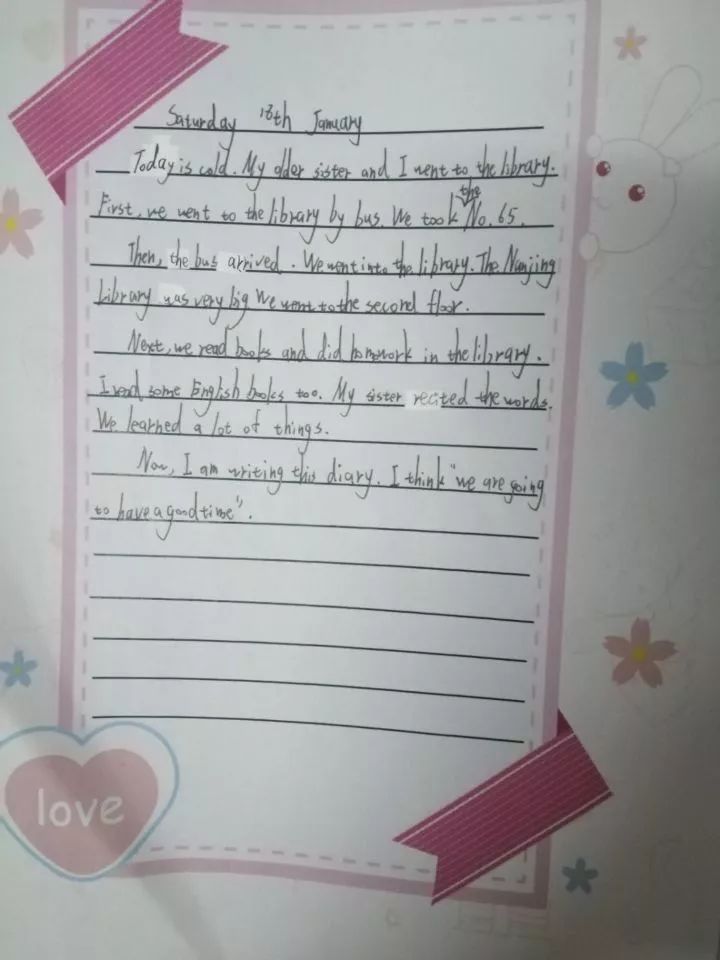 Saturday 18th January
Today is cold. My older sister and I went to the library.
the
First, we went to the library by bus. We took No. 65.
Then, the bus arrived. We went into the library. The Nanjing
Library was very big We went to the second floor.
Next, we read books and did homework in the library.
I read some English books too. My sister recited the words.
We learned a lot of things.
Now, I am writing this diary. I think "we are going
to have a good time".
love